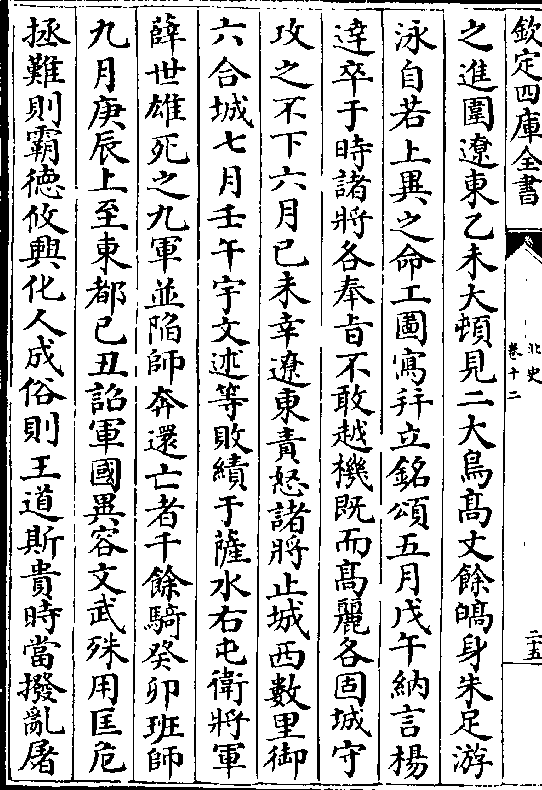 欽定四庫全書
北史
卷十二
二十五
之進圍遼東乙未大頓見二大鳥髙丈餘皜身朱足游
泳自若上異之命工圖寫并立銘頌五月戊午納言楊
逹卒于時諸將各奉旨不敢越機既而髙麗各固城守
攻之不下六月已未幸遼東責怒諸將止城西數里御
六合城七月壬午宇文述等敗績于薩水右屯衛將軍
薛世雄死之九軍並陷師奔還亡者千餘騎癸卯班師
九月庚辰上至東都已丑詔軍國異容文武殊用匡危
拯難則霸徳攸興化人成俗則王道斯貴時當撥亂屠